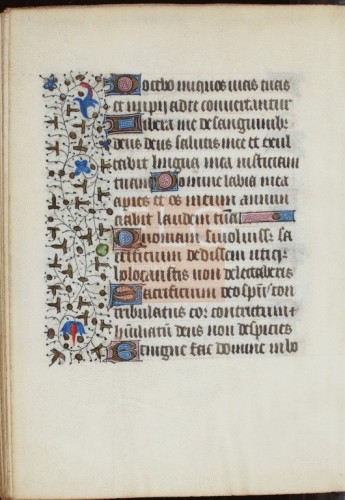 Docebo iniquos vias tuas
et impii ad te convertantur
Libera me de sanguinibꝰ
deus deus salutis mee et exul
tabit lingua mea iusticiam
tuam Domine labia mea
apies et os meum annun
ciabit laudem tuā
Quoniam si voluiss sa
crificium dedissem utiqꝫ
holocaustis non delectaberis
Sacrificium deo spūs con
tribulatus cor contritum et
hūiliatū deus non despicies
Benigne fac domine in bo